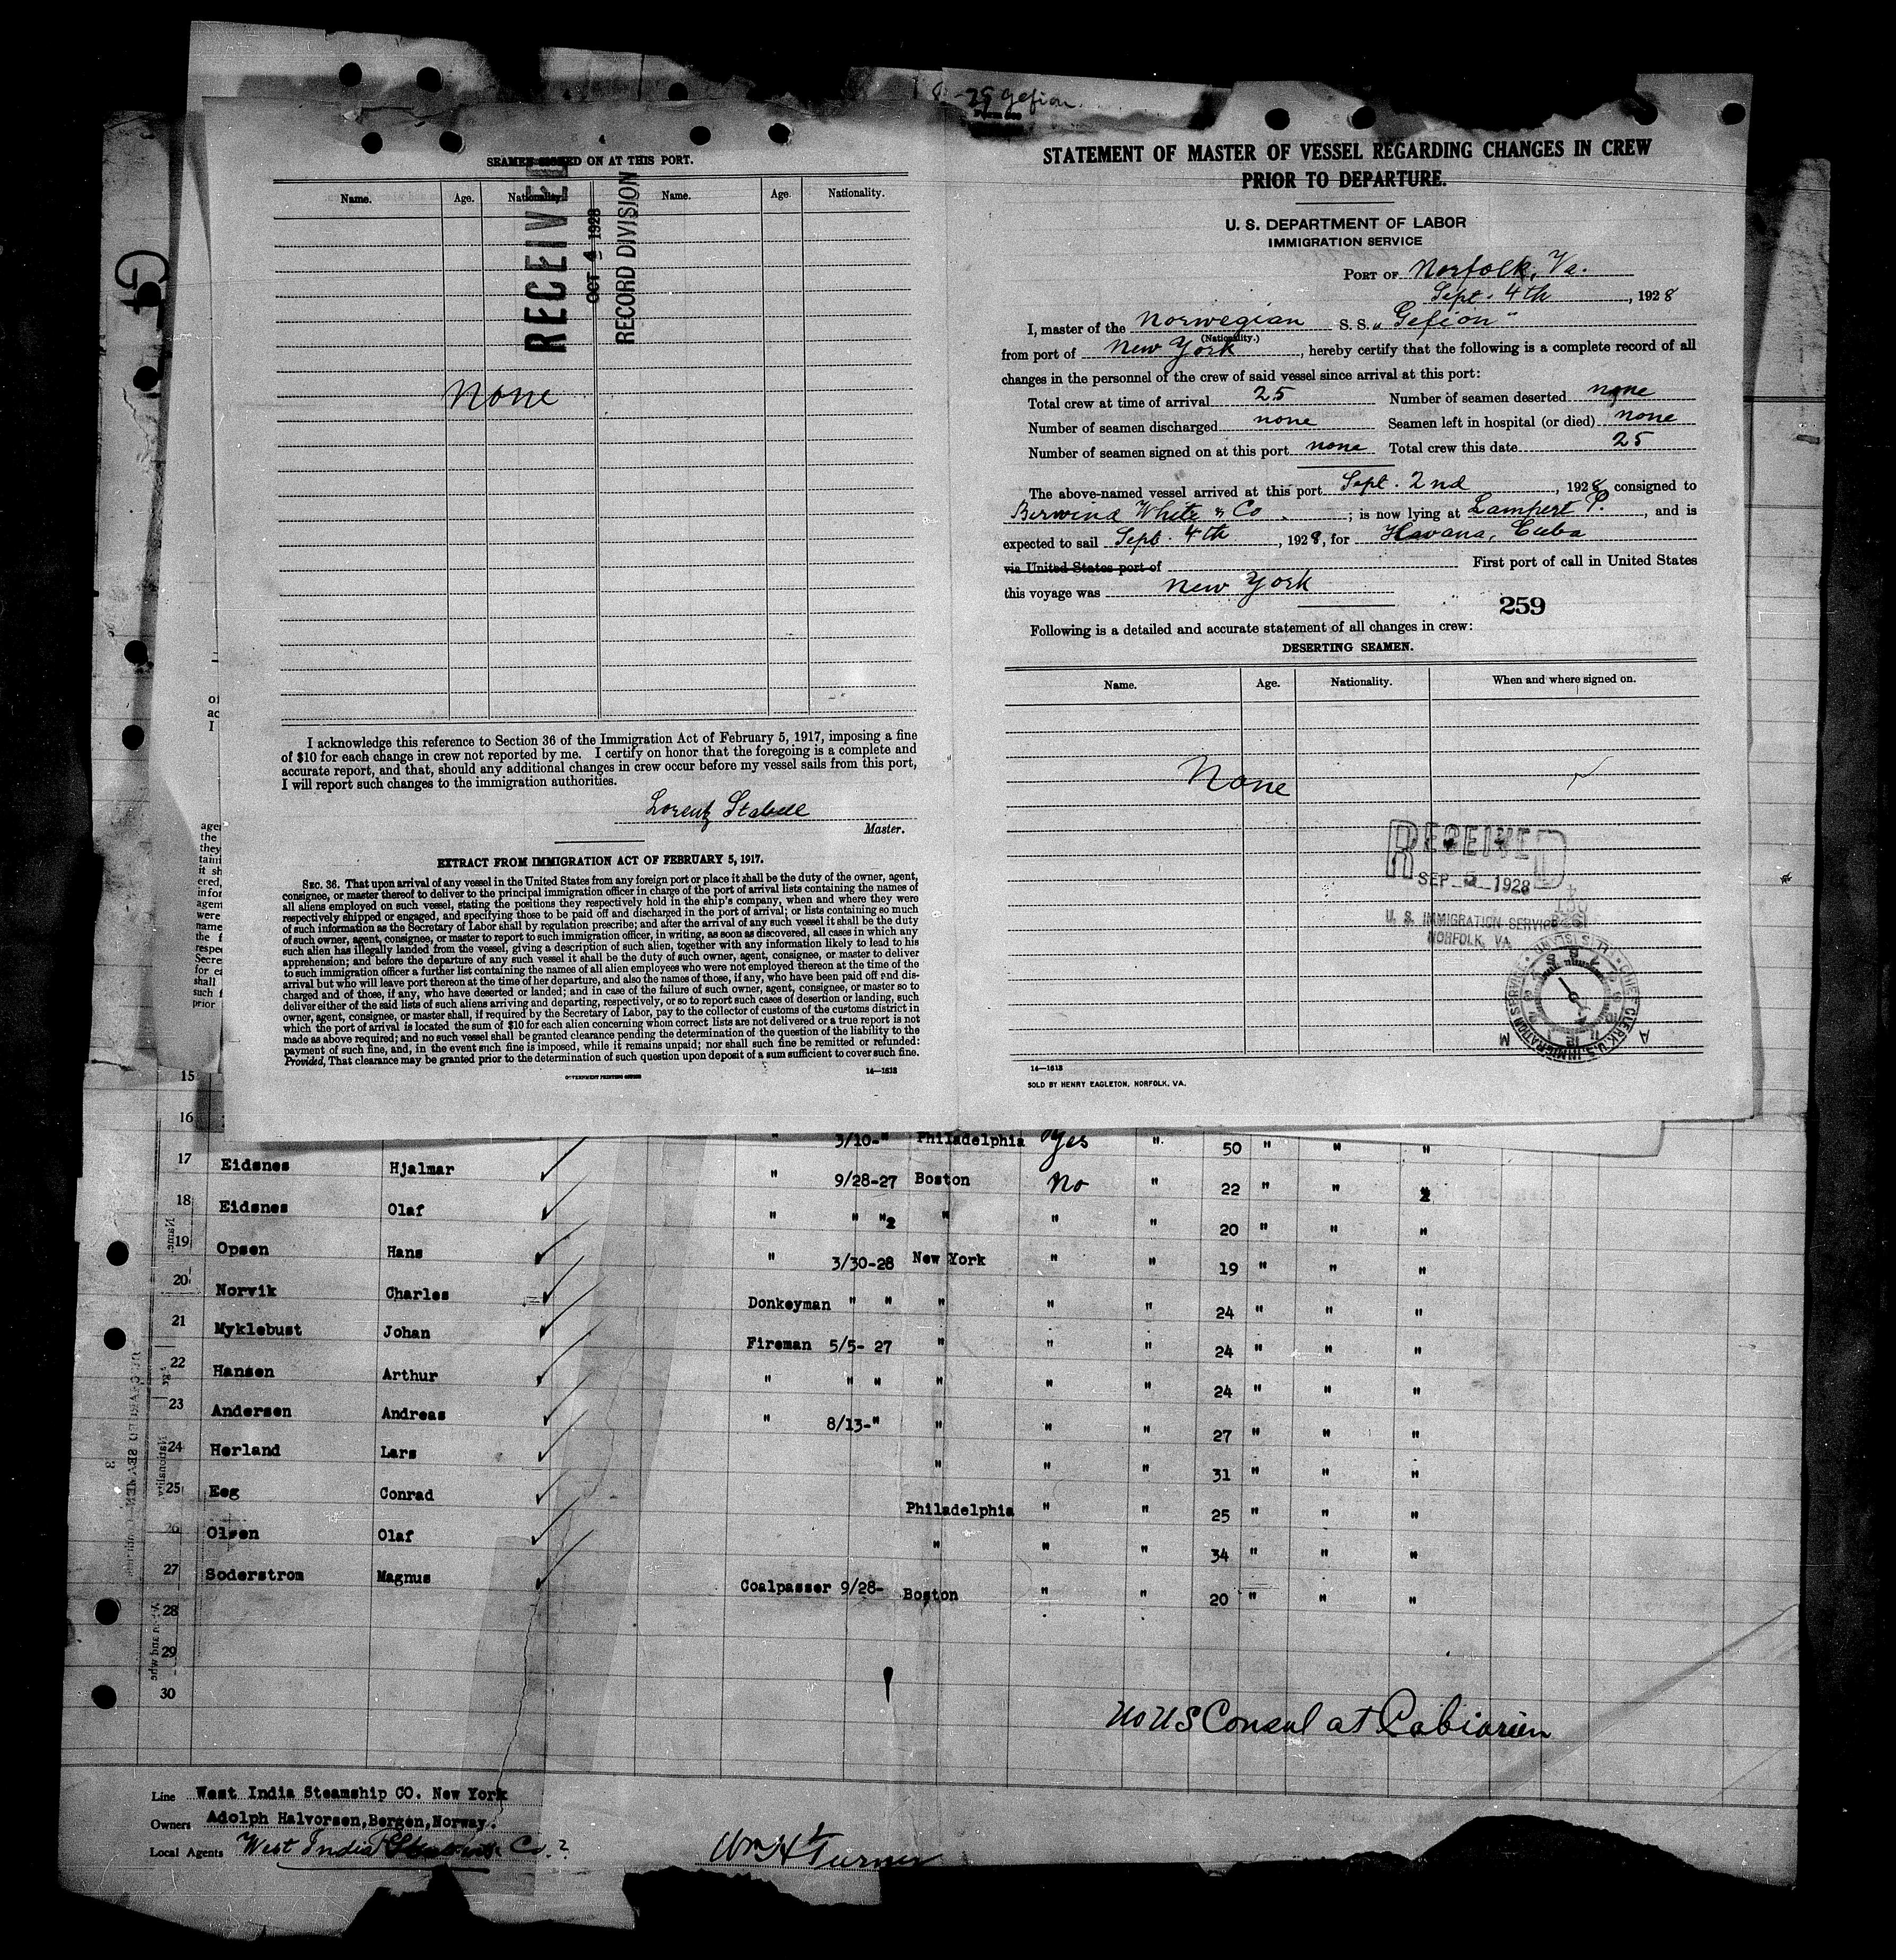 SEAMEN SIGNED ON AT THIS PORT.
Name. Age. Nationality. Name. Age. Nationality.
RECEIVED
OCT 4 1928
RECORD DIVISION
None
I acknowledge this reference to Section 36 of the Immigration Act of February 5, 1917, imposing a fine
of $10 for each change in crew not reported by me. I certify on honor that the foregoing is a complete and
accurate report, and that, should any additional changes in crew occur before my vessel sails from this port,
I will report such changes to the immigration authorities.
Lorentz Stabell
Master.
EXTRACT FROM IMMIGRATION ACT OF FEBRUARY 5, 1917.
SEC. 36. That upon arrival of any vessel in the United States from any foreign port or place it shall be the duty of the owner, agent,
consignee, or master thereof to deliver to the principal immigration officer in charge of the port of arrival lists containing the names of
all aliens employed on such vessel, stating the positions they respectively hold in the ship's company, when and where they were
respectively shipped or engaged, and specifying those to be paid off and discharged in the port of arrival; or lists containing so much
of such information as the Secretary of Labor shall by regulation prescribe; and after the arrival of any such vessel it shall be the duty
of such owner, agent, consignee, or master to report to such immigration officer, in writing, as soon as discovered, all cases in which any
such alien has illegally landed from the vessel, giving a description of such alien, together with any information likely to lead to his
apprehension; and before the departure of any such vessel it shall be the duty of such owner, agent, consignee, or master to deliver
to such immigration officer a further list containing the names of all alien employees who were not employed thereon at the time of the
arrival but who will leave port thereon at the time of her departure, and also the names of those, if any, who have been paid off end dis-
charged and of those, if any, who have deserted or landed; and in case of the failure of such owner, agent, consignee, or master so to
deliver either of the said lists of such aliens arriving and departing, respectively, or so to report such cases of desertion or landing, such
owner, agent, consignee, or master shall, if required by the Secretary of Labor, pay to the collector of customs of the customs district in
which the port of arrival is located the sum of $10 for each alien concerning whom correct lists are not delivered or a true report is not
made as above required; and no such vessel shall be granted clearance pending the determination of the question of the liability to the
payment of such fine, and, in the event such fine is imposed, while it remains unpaid; nor shall such fine be remitted or refunded:
Provided, That clearance may be granted prior to the determination of such question upon deposit of a sum sufficient to cover such fine.
GOVERNMENT PRINTING OFFICE 14—1613
Gefion
STATEMENT OF MASTER OF VESSEL REGARDING CHANGES IN CREW
PRIOR TO DEPARTURE.
U. S. DEPARTMENT OF LABOR
IMMIGRATION SERVICE
PORT OF Norfolk, Va.
Sept. 4th, 1928
I, master of the Norwegian S. S. "Gefion"
(Nationality.)
from port of New York, hereby certify that the following is a complete record of all
changes in the personnel of the crew of said vessel since arrival at this port:
Total crew at time of arrival 25 Number of seamen deserted none
Number of seamen discharged none Seamen left in hospital (or died) none
Number of seamen signed on at this port none Total crew this date 25
The above-named vessel arrived at this port Sept. 2nd, 1928, consigned to
Berwind White & Co; is now lying at Lampert P., and is
expected to sail Sept. 4th, 1928, for Havana, Cuba
via United States port of First port of call in United States
this voyage was New York
259
Following is a detailed and accurate statement of all changes in crew:
DESERTING SEAMEN.
Name. Age. Nationality. When and where signed on.
None
RECEIVED
SEP 1928
U. S. IMMIGRATION SERVICE
NORFOLK, VA.
14—1613
SOLD BY HENRY EAGLETON, NORFOLK, VA.
15
16 " 3/10-" Philadelphia Yes " 50 " " "
17 Eidsnes Hjalmar " 9/28-27 Boston No " 22 " " "
18 Eidsnes Olaf " " " " " " 20 " " "
19 Opsen Hans " 3/30-28 New York " " 19 " " "
20 Norvik Charles Donkeyman " " " " " 24 " " "
21 Myklebust Johan Fireman 5/5- 27 " " " 24 " " "
22 Hansen Arthur " " " " " " 24 " " "
23 Andersen Andreas " 8/13-" " " " 27 " " "
24 Herland Lars " " " 31 " " "
25 Eeg Conrad Philadelphia " " 25 " " "
26 Olsen Olaf " " " 34 " " "
27 Soderstrom Magnus Coalpasser 9/28- Boston " " 20 " " "
28
29
30
No US Consul at Caibarien
Line West India Steamship CO. New York
Owners Adolph Halvorsen,Bergen,Norway.
Local Agents West India Co.
Wm H Turner